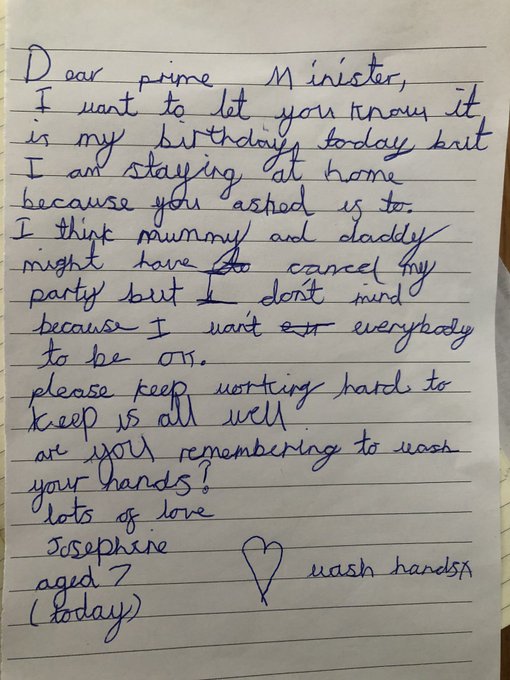 Dear prime Minister,
I want to let you know it
is my birthday, today but
I am staying at home
because you asked us to.
I think mummy and daddy
might have to cancel my
party but I don't mind
because I want everybody
to be ok.
please keep working hard to
keep us all well
are you remembering to wash
your hands?
lots of love
Josephine
aged 7
(today)
wash hands x